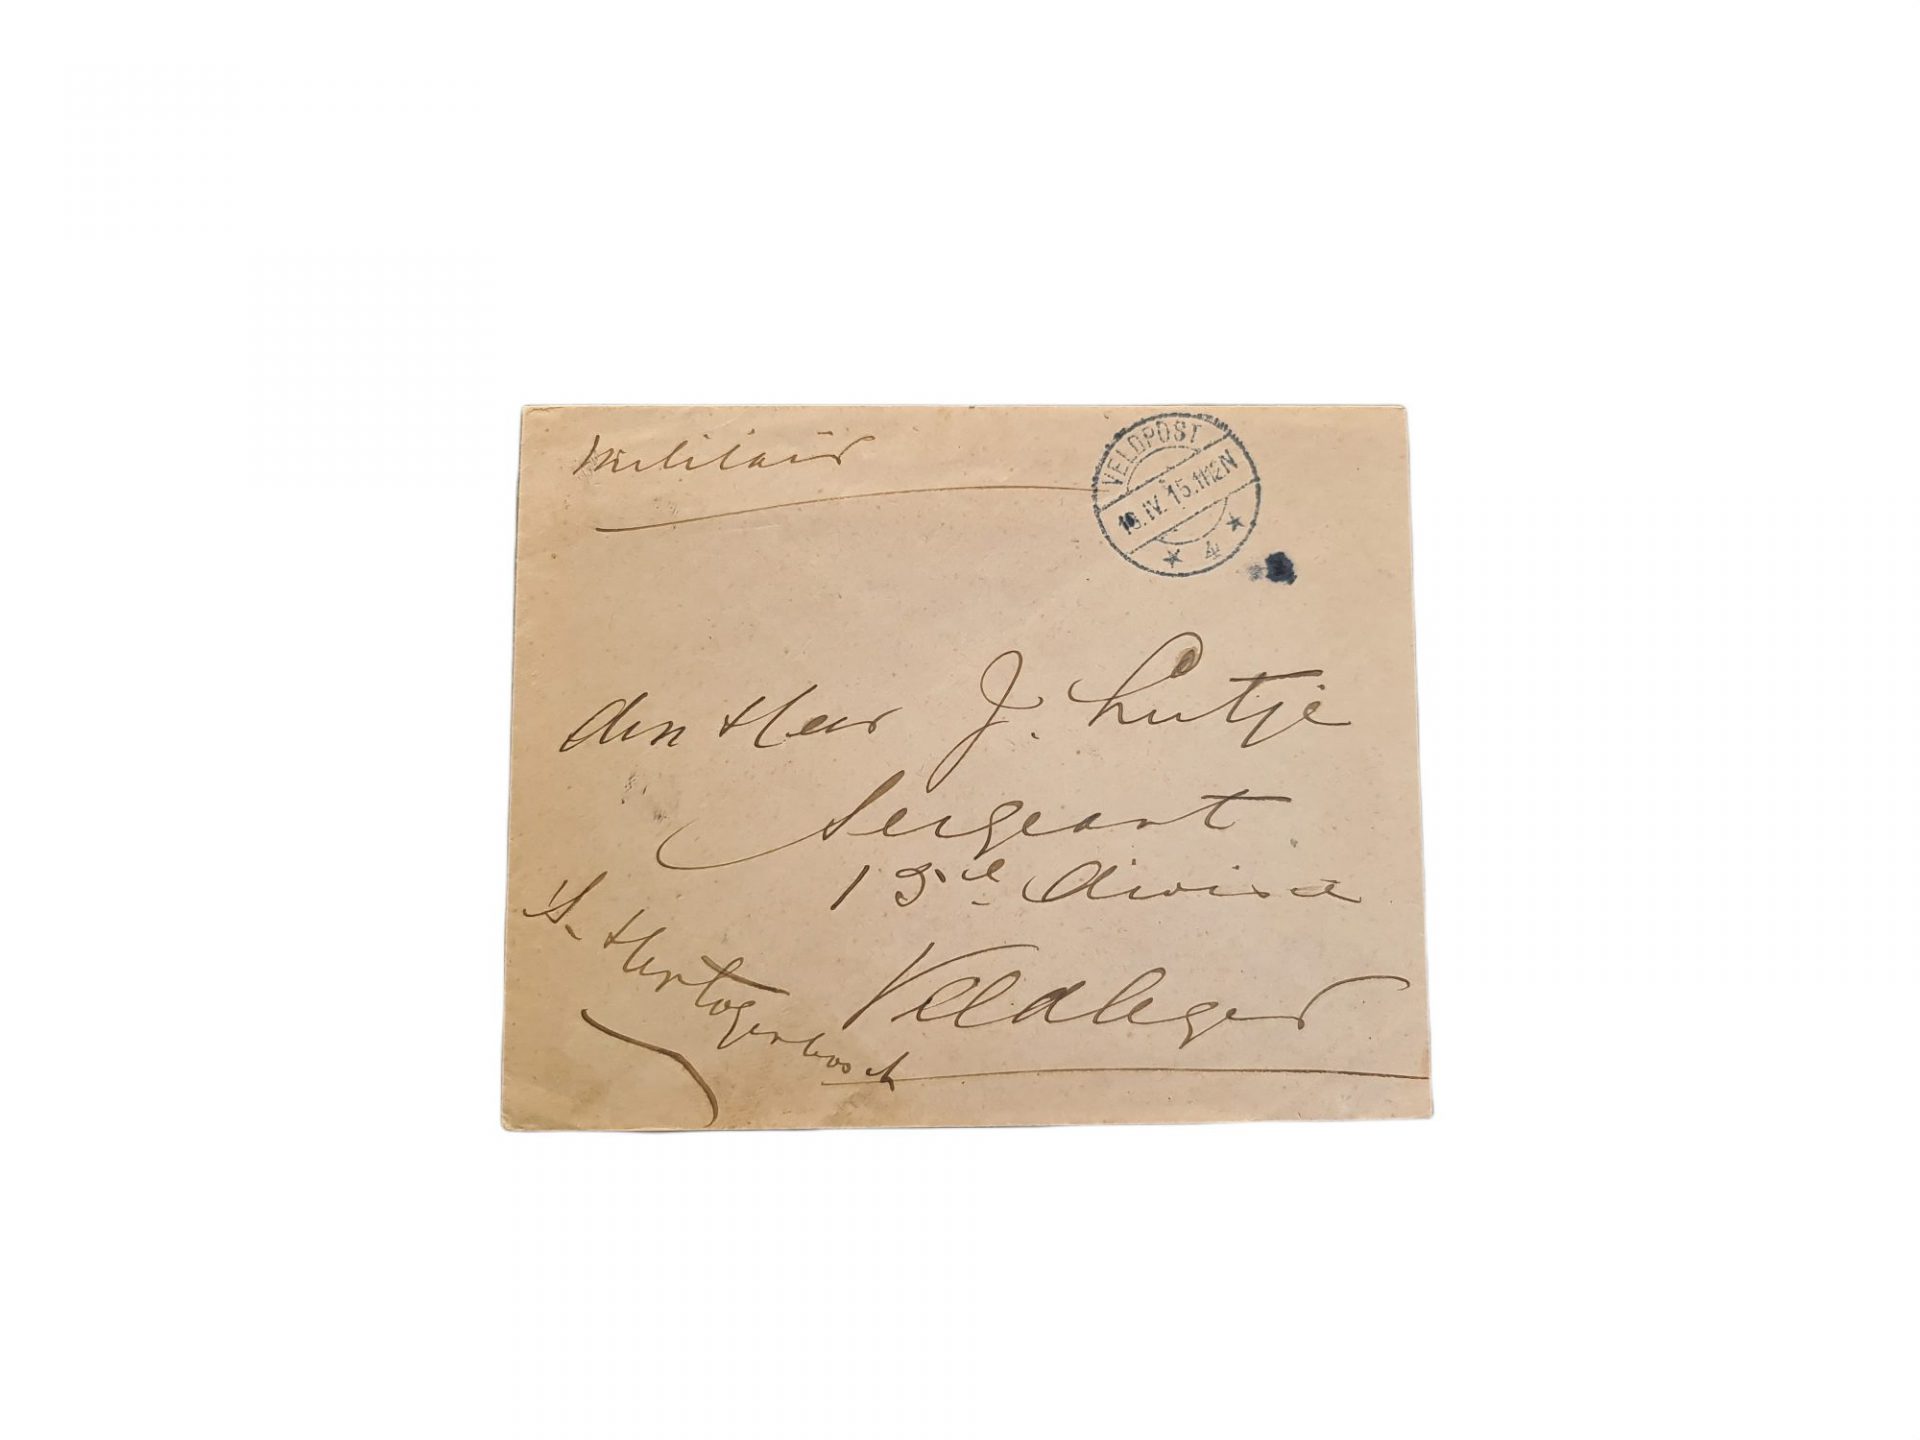 Militair
VELDPOST
18.IV.15.11-12N
4
den Heer J. Lutje
Sergeant
13e divisie
Veldleger
's-Hertogenbosch